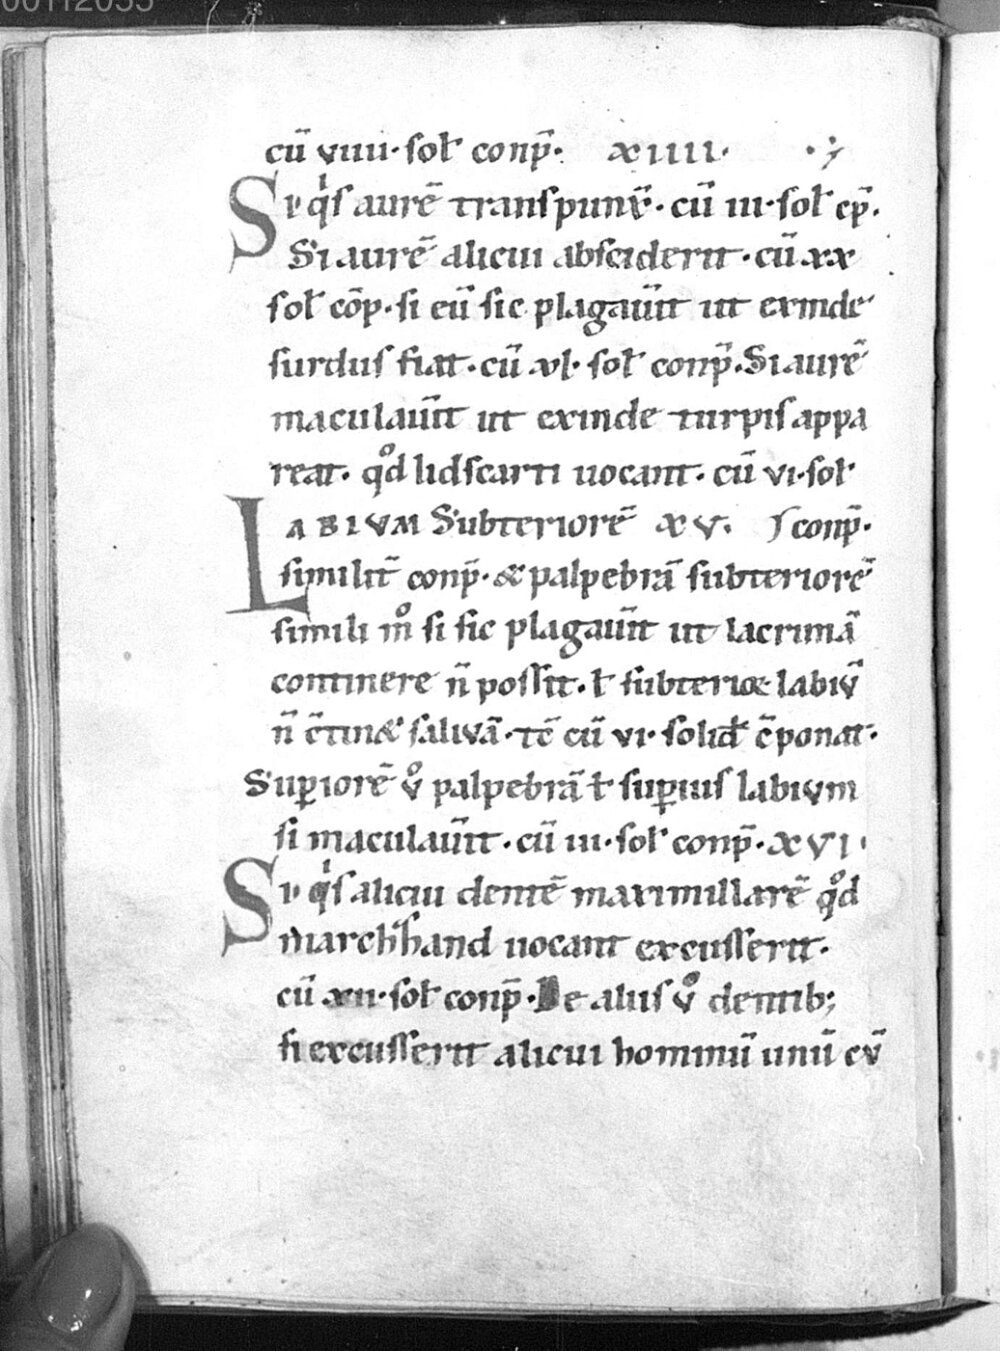 00112055
cū viiii· sol̄ conp̄· xiiii·
Si q̇s aurē transpunx̄· cū iii· sol̄ cp̄·
Si aurē alicui absciderit· cū xx
sol̄ cōp· si eū sic plagaūit ut exinde
surdus fiat· cū xl· sol̄ conp̄· Si aurē
maculaūit ut exinde turpis appa
reat· qd̊ lidscarti uocant· cū vi· sol̄
LABIVM Subteriorē xv· conp̄·
similit̄ conp̄· & palpebrā subteriorē
simili m̊ si sic plagaūit ut lacrimā
continere n̄ possit· ł subterior labiv̄
n̄ c̄tin& salivā· tc̄ cū vi· solid̄ c̄ponat·
Sup̱iorē v̊ palpebrā ł sup̱ius labivm
si maculaūit· cū iii· sol̄ conp̄· xvi·
Si q̇s alicui dentē maximillarē qd̊
marchh̄and uocant excusserit·
cū xii· sol̄ conp̄· De aliis v̊ dentib;
si excusserit alicui hominū unū cv̄